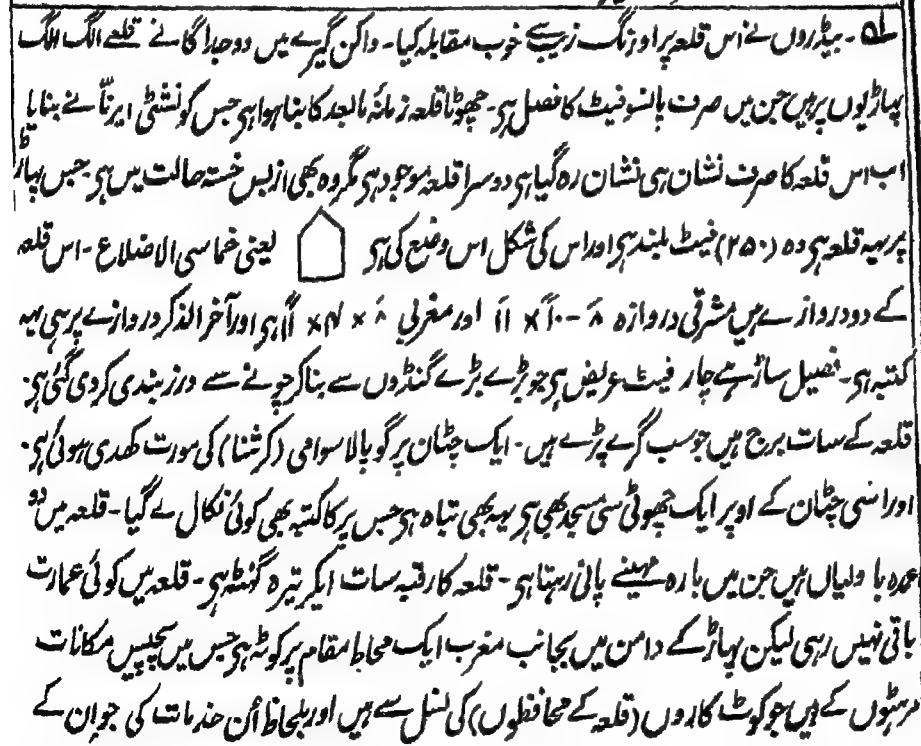 ۵۱ - بیڈروں نے اس قلعہ پر اورنگ زیب سے خوب مقابلہ کیا - واکن گیرے میں دو جداگانے قلعے الگ الگ
پہاڑیوں پر ہیں جن میں صرف پانسو فیٹ کا فصل ہی - چھوٹا قلعہ زمانۂ مابعد کا بنا ہوا ہی جس کو نشٹی ایرنّا نے بنایا تھا
اب اس قلعہ کا صرف نشان ہی نشان رہ گیا ہی دوسرا قلعہ موجود ہی مگر وہ بھی ازبس خستہ حالت میں ہی جس پہاڑ
پر یہہ قلعہ ہی وہ (۲۵۰) فیٹ بلند ہی اور اس کی شکل اس وضع کی ہی یعنی خماسی الاضلاع - اس قلعہ
کے دو دروازے ہیں مشرقی دروازہ ۸ - ۱۰ × ۱۱ اور مغربی ۸ × ۱۴ × ۱۱ ہی اور آخر الذکر دروازے پر ہی یہ
کتبہ ہی - فصیل ساڑھے چار فیٹ عریض ہی جو بڑے بڑے گنڈوں سے بنا کر چونے سے درز بندی کر دی گئی ہی -
قلعہ کے سات برج ہیں جو سب گرے پڑے ہیں - ایک چٹان پر گوپالا سوامی (کرشنا) کی مورت کھدی ہوئی ہی -
اور اسی چٹان کے اوپر ایک چھوٹی سی مسجد بھی ہی یہہ بھی تباہ ہی جس پر کا کتبہ بھی کوئی نکال لے گیا - قلعہ میں دو
عمدہ باولیاں ہیں جن میں بارہ مہینے پانی رہتا ہی - قلعہ کا رقبہ سات ایکر تیرہ گنٹہ ہی - قلعہ میں کوئی عمارت
باقی نہیں رہی لیکن پہاڑ کے دامن میں بجانب مغرب ایک محاط مقام پر کوٹہ ہی جس میں پچیس مکانات
مرہٹوں کے ہیں جو کوٹ کاروں (قلعہ کے محافظوں) کی نسل سے ہیں اور بلحاظ اُن خدمات کی جو ان کے